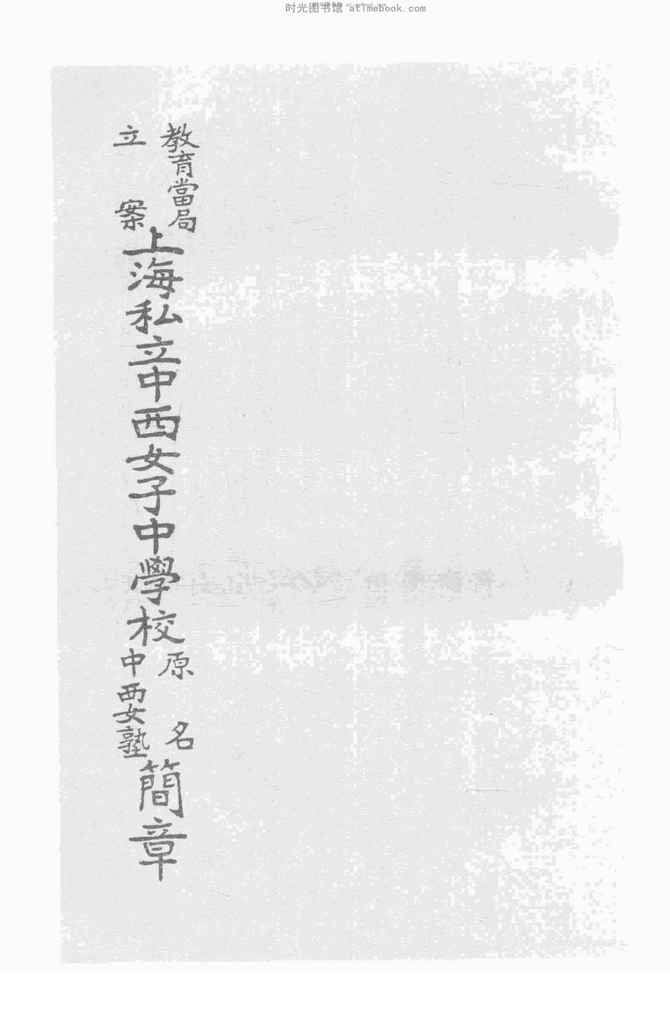 时光图书馆
教育當局
立案
上海私立中西女子中學校
原名
中西女塾
簡章